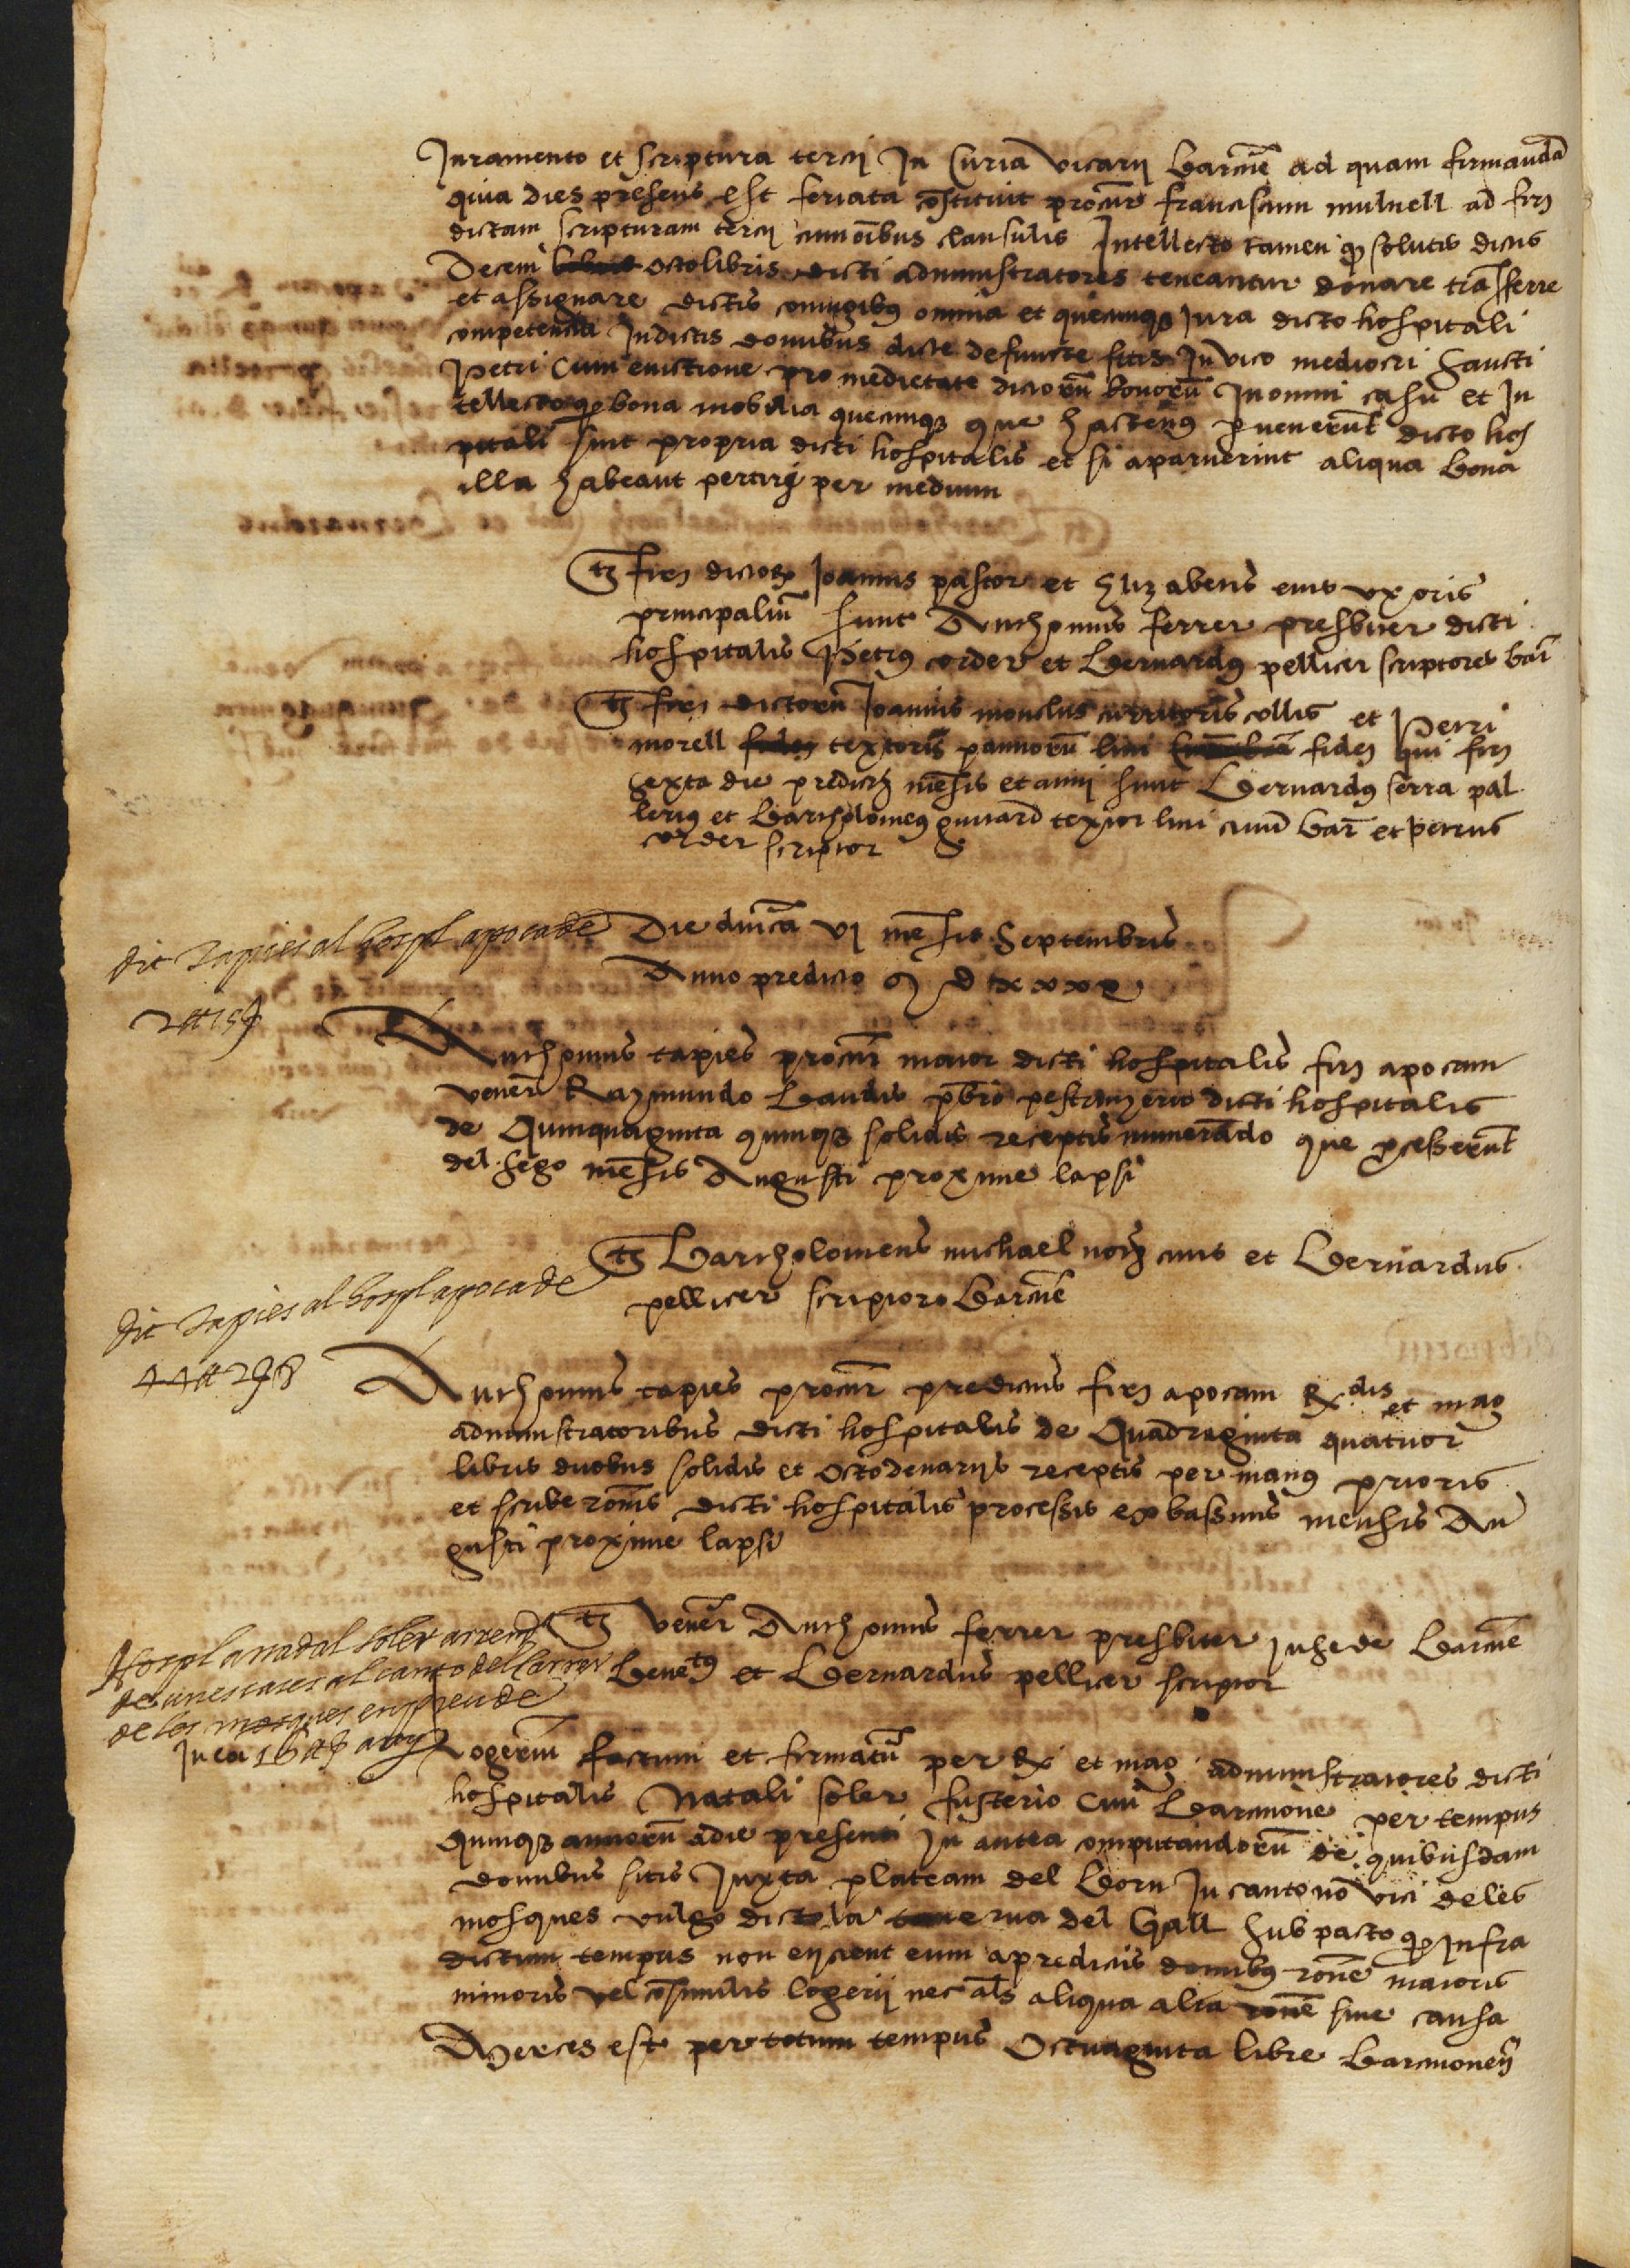 Juramento et scriptura tercij In Curia vicarij barcne ad quam firmanda
quia dies presens est feriata constituit procur franciscum mulnell ad fir
dictam scripturam tercij cum oibus clausulis Intellecto tamen q solutis dictis
Decem octo libris dicti administratores teneantur donare transferre
et assignare dictis coniugibus omnia et quecumque Jura dicto hospitali
competencia In dictis domibus dicte defuncte sitis In vico mediocri Sancti
Petri Cum euictione pro medietate dictoru bonoru In omni casu et In
tellecto q bona mobilia quecumque que hactenus peruenerut dicto hos
pitali sint propria dicti hospitalis et si aparuerint aliqua bona
illa habeant pertiri per medium
ts firm dictor Joannis pastor et Elizabetis eius uxoris
principaliu sunt Anthonius ferrer presbiter dicti
hospitalis Petrus corder et Bernardus pellicer scriptores bar
ts firm dictoru Joannis monclus curritoris collis et Petri
morell textoris pannoru lini fideij qui firm
sexta die predictis mensis et anni sunt Bernardus serra pal
lerius et Bartholomeus guitard textor lini ciues bar et petrus
corder scriptor
Die dnica vj mensis Septembris
Anno predicto M D xxxx
dit Tapies al hospl apoca de
2 ℔ 15 ſ
Anthonius tapies procur maior dicti hospitalis firm apocam
vener Raymundo Baudis pbro dicti hospitalis
de Quinquaginta quinque solidis receptis numerado que processerut
del sego mensis Augusti proxime lapsi
ts Bartholomeus michael nots ciuis et Bernardus
pellicer scriptores Barcne
dit Tapies al hospl apoca de
44 ℔ 2 ſ 8
Anthonius tapies procur predictus firm apocam Rdis et mag
administratoribus dicti hospitalis de Quadraginta quatuor
libris duobus solidis et octo denarijs receptis per manus prioris
et scribe ronis dicti hospitalis processis ex bassinis mensis Au
gusti proxime lapsi
ts vener Anthonius ferrer presbiter in sede Barcne
benetus et Bernardus pellicer scriptor
Hospl a nadal soler arren
de unes cases al canto del carrer
de les mosques en pren de
Ju ea 16 ℔ any
Logeriu factum et firmatu per R et mag administratores dicti
hospitalis Natali soler fusterio Ciui Barcinone per tempus
Quinque annoru a die presenti In antea computandoru de quibusdam
domibus sitis Juxta plateam del Born In cantono vici de les
mosques vulgo dicto la tauerna del Gall Sub pacto q Infra
dictum tempus non eijcient eum a predictis domibus rone maioris
minoris vel consimilis logerij nec als aliqua alia rone siue causa
Merces est per totum tempus Octuaginta libre barcinonen